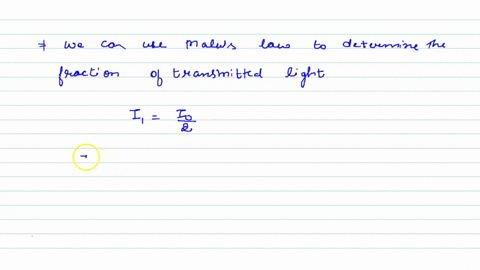 ⇒ we can use Malus law to determine the
fraction of transmitted light
I₁ = I₀/2
-